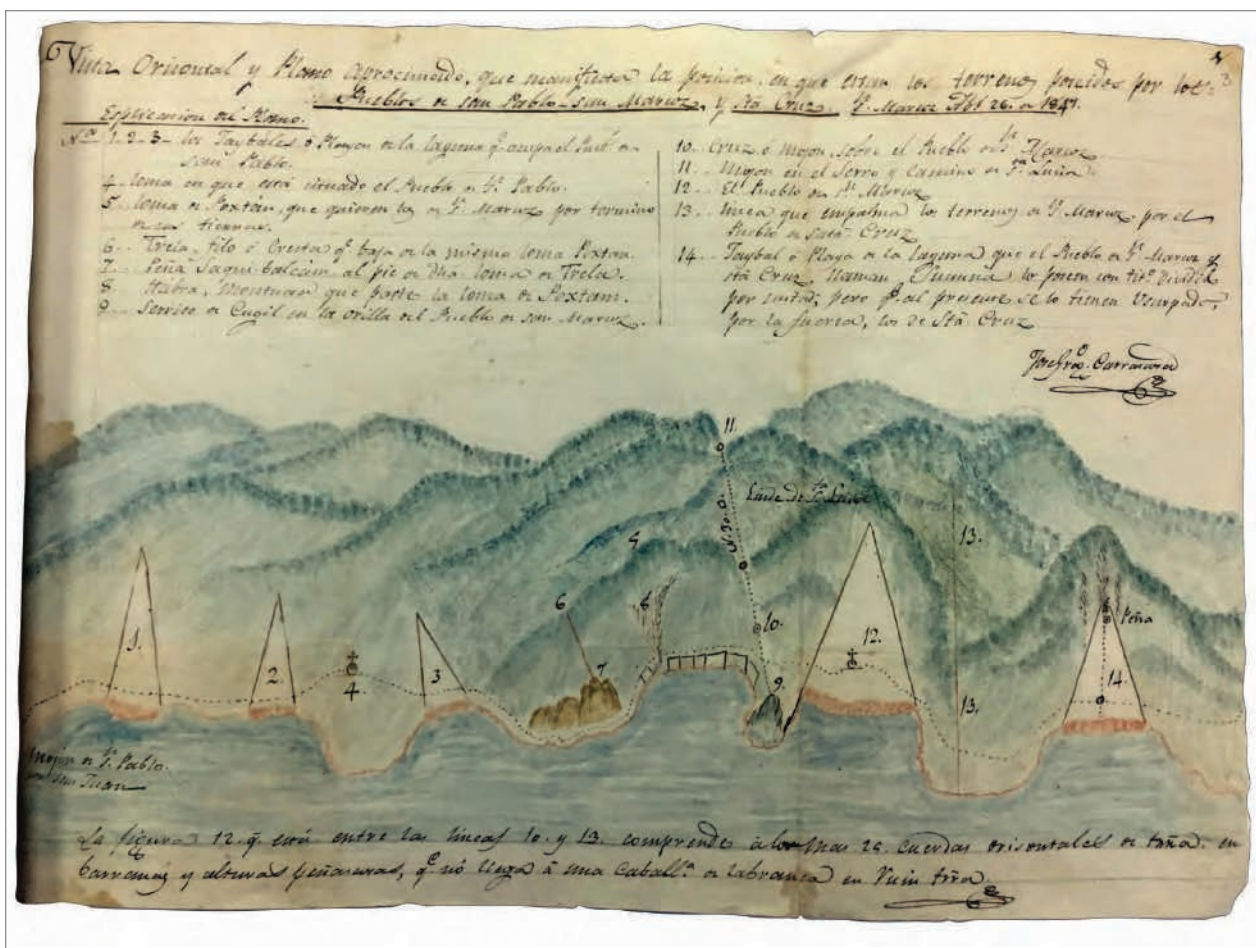 Vista Orisontal y Plano aprocimado, que manifiesta la posicion en que estan los terrenos poseidos por los
Pueblos de san Pablo - san Marcoz, y Sta. Cruz. Sn. Marcoz Abl. 26. de 1847.
Esplicacion del Plano.
Nos. 1 - 2 - 3 - los Taybales ó Playon de la laguna qe. ocupa el Pueb. de
san Pablo.
4 - loma en que está cituado el Pueblo de Sn. Pablo.
5 - loma de Poxtán, que quieren los de Sn. Marcoz por termino
de sus tierras.
6 - Trela, filo ó Cresta qe. baja de la misma loma Poxtan.
7 - Peña Saquibalcám al pie de dha. loma de Trela.
8 - Habra, que parte la loma de Poxtam.
9 - Serrito de Cugil en la orilla del Pueblo de san Marcoz.
10 - Cruz ó mojon, sobre el Pueblo de Sn. Marcoz
11 - Mojon en el Serro y camino de Sta. Lucia.
12 - El Pueblo de Sn. Marcoz
13 - linea que empalma los terrenos de Sn. Marcoz por el
Pueblo de Santa Cruz
14 - Taybal ó Playa de la laguna que el Pueblo de Sn. Marcoz y
Sta. Cruz llaman lo poseen con tito. dividido
por mitad; pero qe. al presente se lo tienen Usurpado,
por la fuerza, los de Sta. Cruz
Jose Franco. Carrascosa
11.
Linde de Sta. Lucia
N. 30. O.
5
13.
1.
2.
4
3
6
7
8
10.
9.
12.
Peña
14.
13.
Mojon de Sn. Pablo
san Juan
La figura 12. qe. está entre las lineas 10. y 13. comprende á lo mas 25. cuerdas orisontales de trra. en
barrancas y alturas peñascosas, qe. nó llega á una caballa. de labranza en trra.